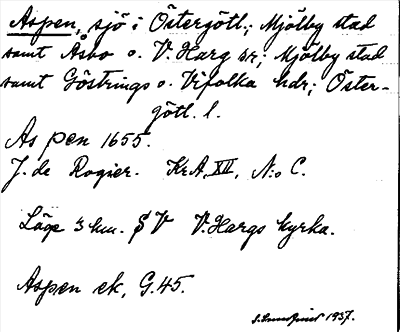 Aspen, sjö i Östergötl.; Mjölby stad
samt Åsbo o. V. Harg sr; Mjölby stad
samt Göstrings o. Vifolka hdr; Öster-
götl. l.
Aspen 1655.
J. de Rogier. KrA, XII, N:o C.
Läge 3 km. S V V. Hargs kyrka.
Aspen ek, G.45.
1937.